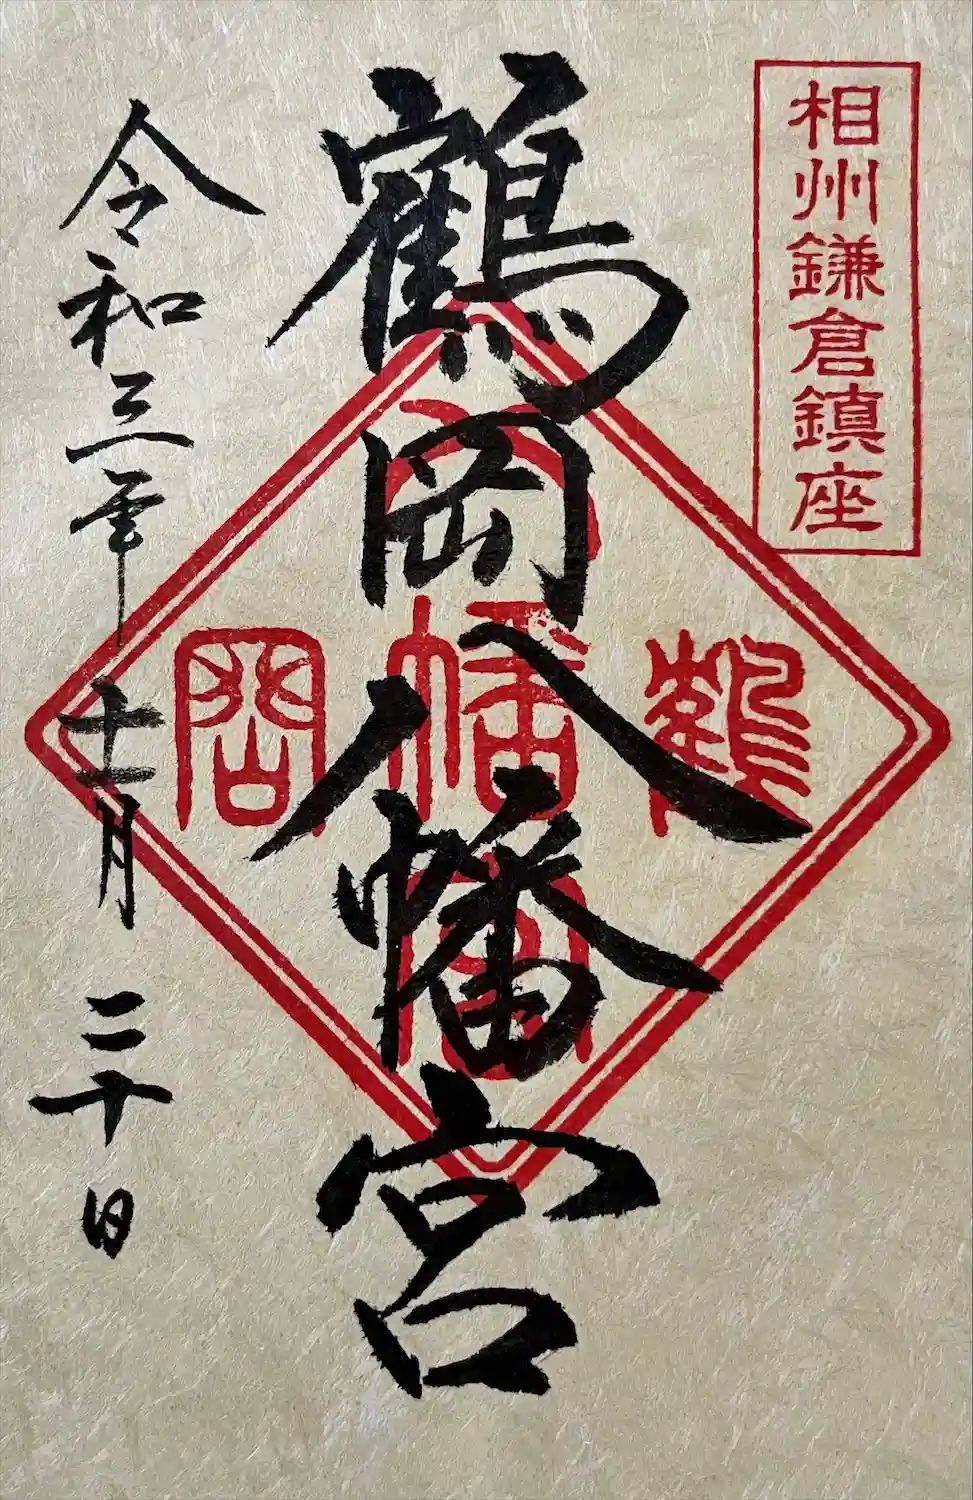 相州鎌倉鎮座
鶴岡八幡宮
鶴岡八幡宮
令和三年十一月二十日